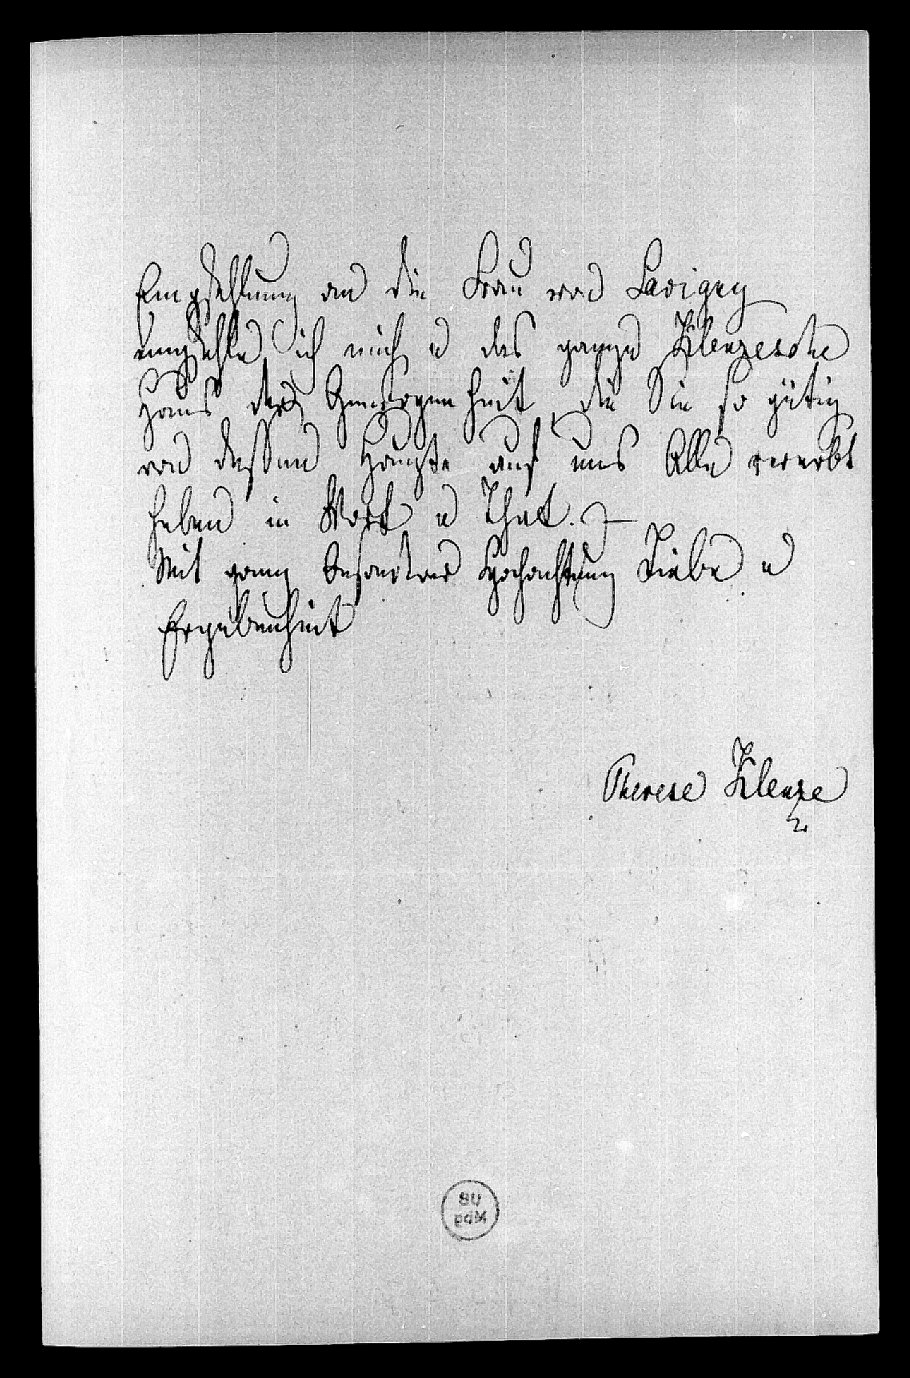 Empfehlung an die Frau von Savigny
empfehle ich mich u das ganze Klenzesche
Haus der Gewogenheit, die Sie so gütig
von dessen Haupte auf uns Alle vererbt
haben in Wort u That. –
Mit ganz besondrer Hochachtung Liebe u
Ergebenheit
Therese Klenze
BU
Mbg